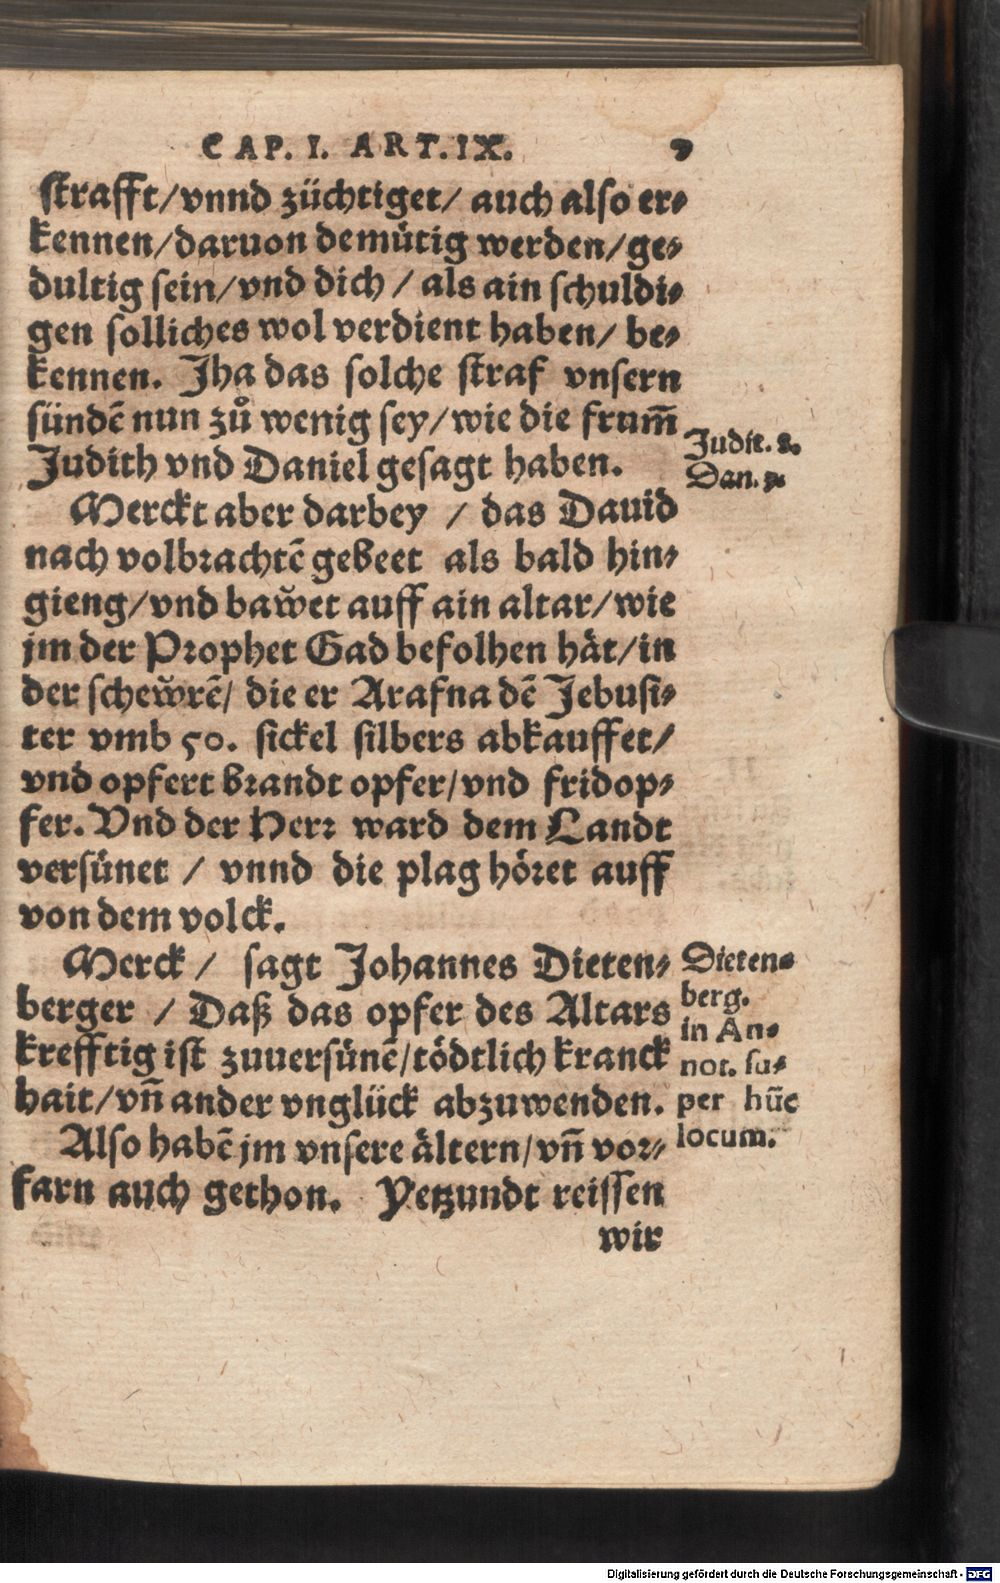 CAP. I. ART. IX. 9
strafft/vnnd züchtiget/ auch also er-
kennen/daruon demütig werden/ge-
dultig sein/vnd dich / als ain schuldi-
gen solliches wol verdient haben/ be-
kennen. Jha das solche straf vnsern
sündē nun zů wenig sey/wie die frum̄
Judith vnd Daniel gesagt haben.
Judit. 8.
Dan. 9.
Merckt aber darbey / das Dauid
nach volbrachtē gebeet als bald hin-
gieng/vnd baw̌et auff ain altar/wie
jm der Prophet Gad befolhen hät/in
der schew̌rē/ die er Arafna dē Jebusi-
ter vmb 50. sickel silbers abkauffet/
vnd opfert brandt opfer/vnd fridop-
fer. Vnd der Herr ward dem Landt
versünet / vnnd die plag höret auff
von dem volck.
Merck / sagt Johannes Dieten-
berger / Daß das opfer des Altars
krefftig ist zuuersünē/tödtlich kranck
hait/vn̄ ander vnglück abzuwenden.
Dieten-
berg.
in An-
not. su-
per hūc
locum.
Also habē jm vnsere ältern/vn̄ vor-
farn auch gethon. Yetzundt reissen
wir
Digitalisierung gefördert durch die Deutsche Forschungsgemeinschaft - DFG